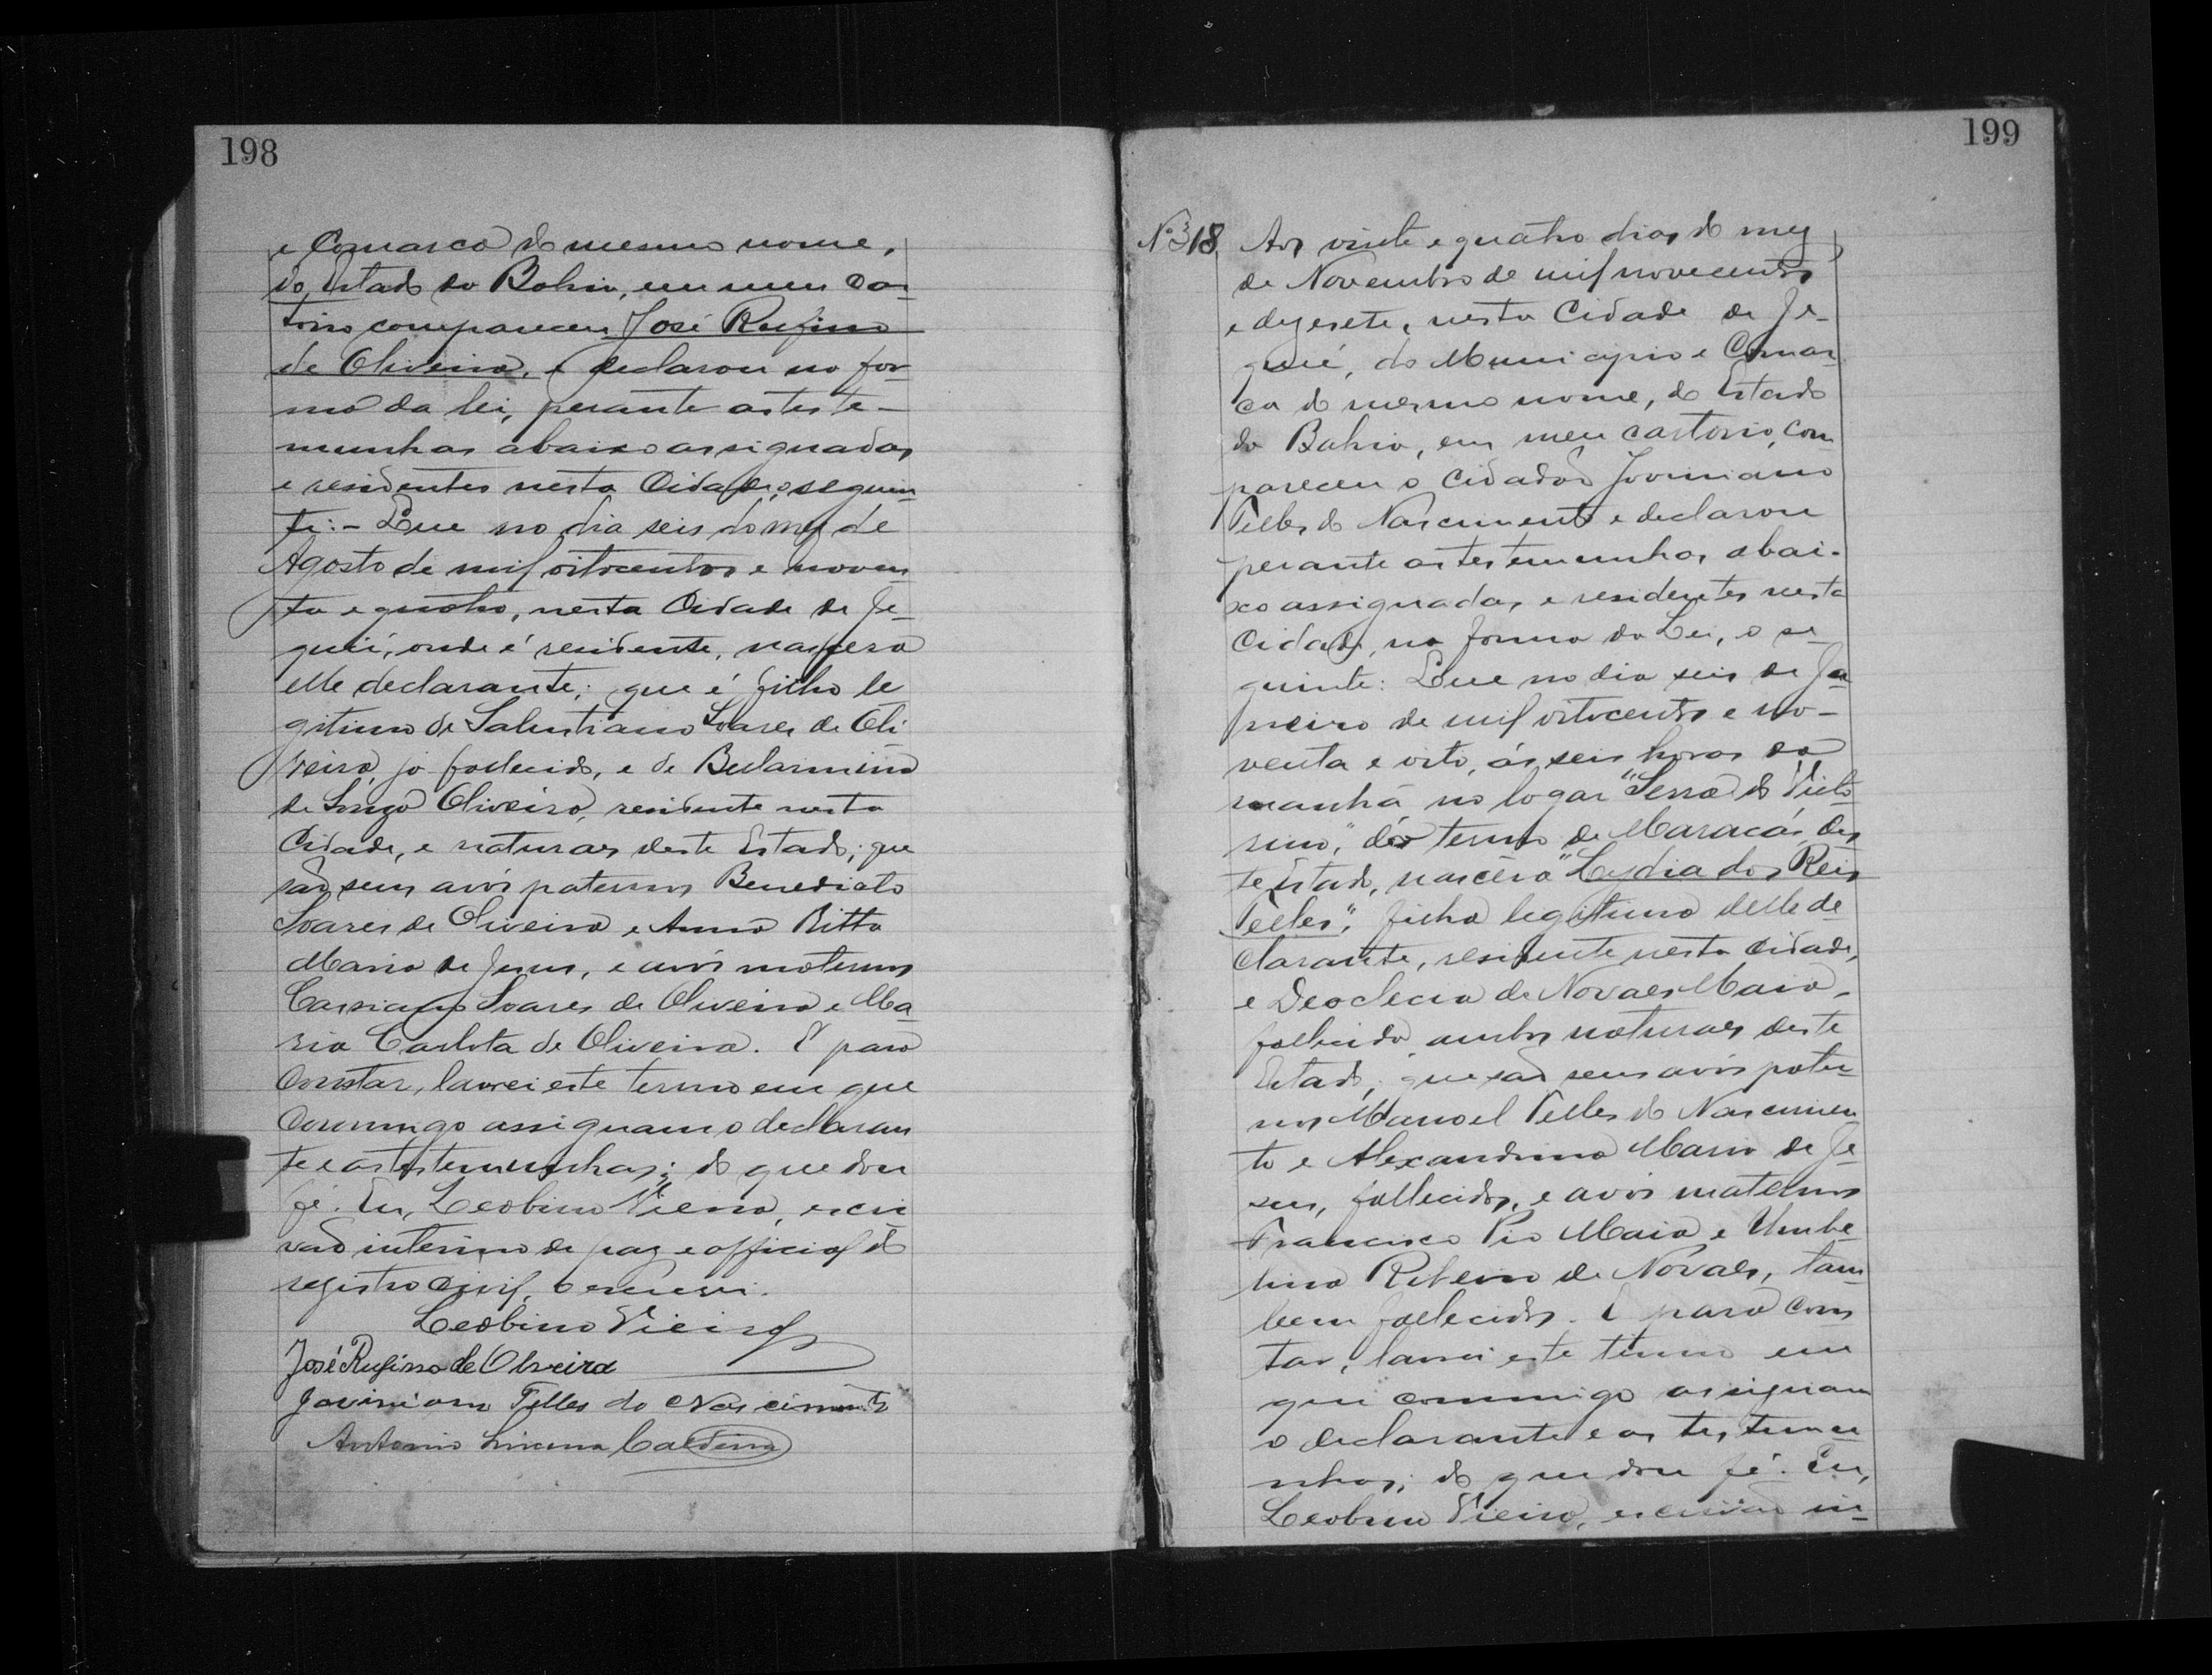 198
e Comarca do mesmo nome,
do Estado da Bahia, em meu car
torio compareceu José Rufino
de Oliveira, e declarou na for
ma da lei, perante as teste-
munhas abaixo assignadas
e residentes nesta Cidade, o seguin
te:- Que no dia seis do mez de
Agosto de mil oitocentos e noven
ta e quatro, nesta Cidade de Je-
quié, onde é residente, nascera
elle declarante; que é filho le
gitimo de Salustiano Soares de Oli
veira, já fallecido, e de Bellarmina
de Souza Oliveira, residente nesta
Cidade, e naturaes deste Estado; que
são seus avós paternos Benedicto
Soares de Oliveira e Anna Ritta
Maria de Jesus, e avós maternos
Cassiano Soares de Oliveira e Ma-
ria Carlota de Oliveira. E para
constar, lavrei este termo em que
commigo assignam o declaran
te e as testemunhas; do que dou
fé. Eu, Leobino Vieira, escri
vão interino de paz e official do
registro civil, o escrevi.
Leobino Vieira
José Rufino de Oliveira
Joviniano Telles do Nascimento
Antonio Caldeira
199
Nº 318 Aos vinte e quatro dias do mez
de Novembro de mil novecentos
e dezesete, nesta Cidade de Je-
quié, do Municipio e Comar
ca do mesmo nome, do Estado
da Bahia, em meu cartorio, com
pareceu o cidadão Joviniano
Telles do Nascimento e declarou
perante as testemunhas abai-
xo assignadas e residentes nesta
Cidade, na forma da Lei, o se-
guinte: Que no dia seis de Ja
neiro de mil oitocentos e no-
venta e oito, ás seis horas da
manhã no logar "Serra do Victo
rino", do termo de Maracás, des
te Estado, nascêra "Lydia dos Reis
Telles", filha legitima delle de
clarante, residente nesta Cidade,
e Deoclecia de Novaes Maia,
fallecida, ambos naturaes deste
Estado; que são seus avós pater-
nos Manoel Telles do Nascimen
to e Alexandrina Maria de Je-
sus, fallecidos, e avós maternos
Francisco Pio Maia e Umbe-
lina Ribeiro de Novaes, tam
bem fallecidos. E para cons
tar, lavrei este termo em
que commigo assignam
o declarante e as testemu
nhas; do que dou fé. Eu,
Leobino Vieira, escrivão in-